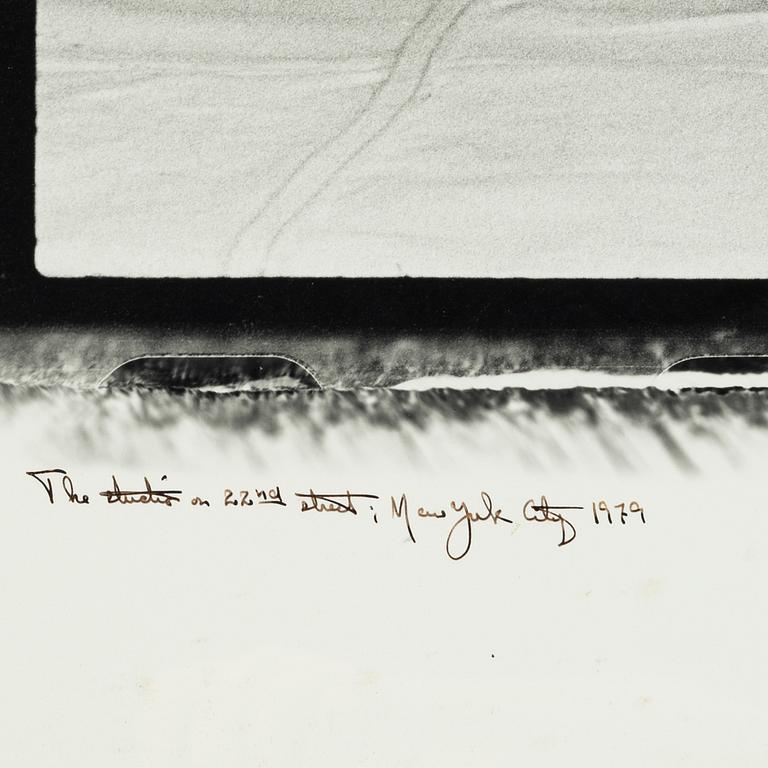 The studio on 22nd street; New York City 1979